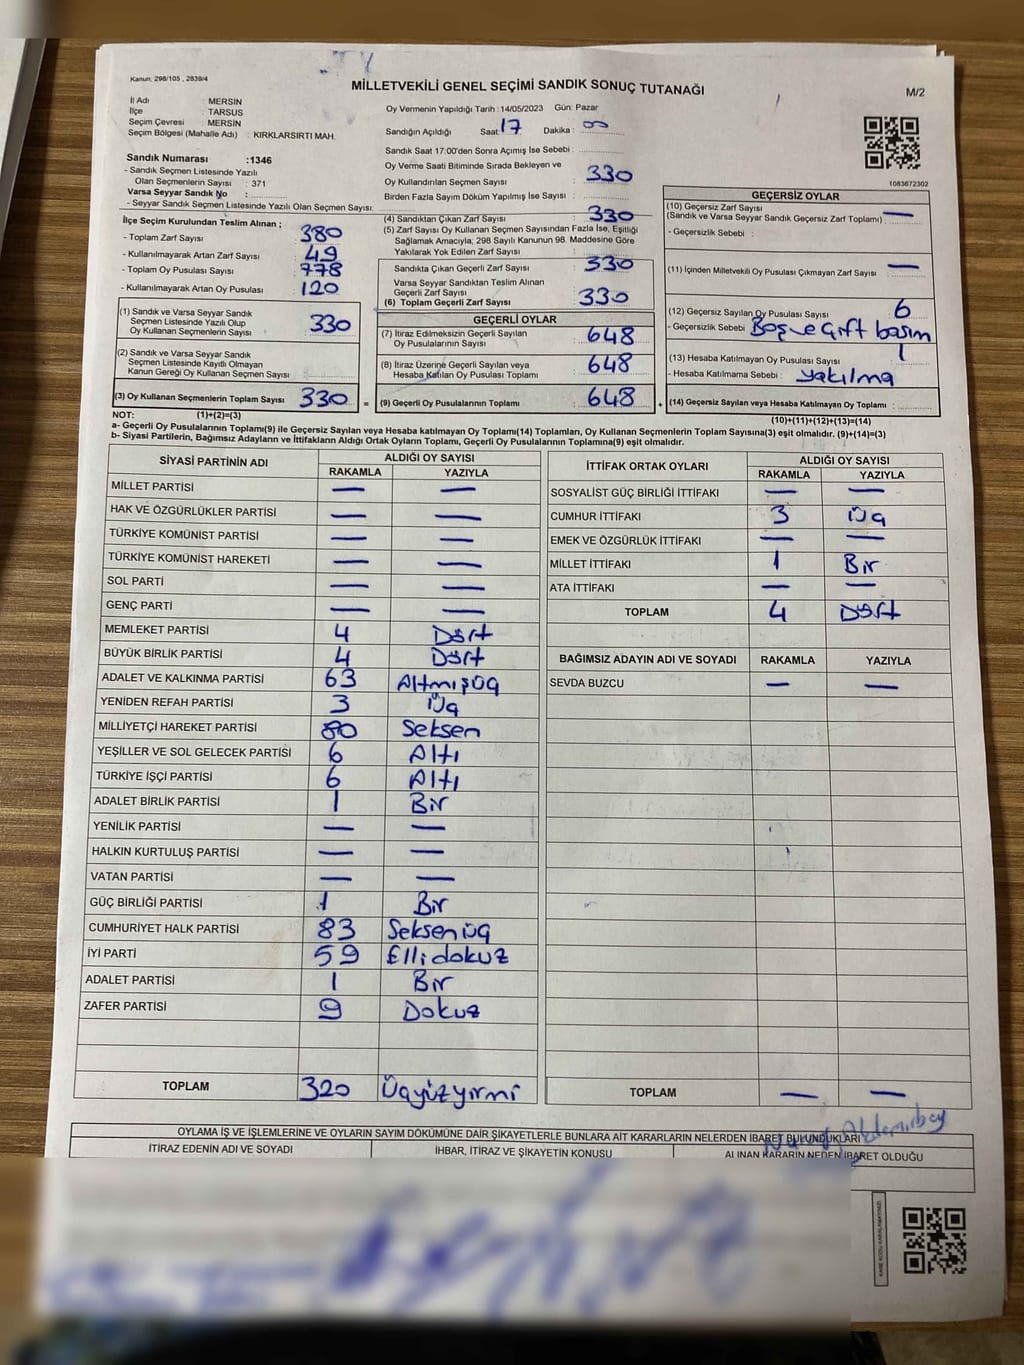 Kanun: 298/105 , 2839/4
MİLLETVEKİLİ GENEL SEÇİMİ SANDIK SONUÇ TUTANAĞI
M/2
İl Adı : MERSİN
İlçe : TARSUS
Seçim Çevresi : MERSİN
Seçim Bölgesi (Mahalle Adı) : KIRKLARSIRTI MAH.
Oy Vermenin Yapıldığı Tarih : 14/05/2023 Gün: Pazar
Sandığın Açıldığı Saat: 17 Dakika : 00
Sandık Saat 17:00'den Sonra Açımış İse Sebebi :
Sandık Numarası :1346
- Sandık Seçmen Listesinde Yazılı
Olan Seçmenlerin Sayısı : 371
Varsa Seyyar Sandık No :
- Seyyar Sandık Seçmen Listesinde Yazılı Olan Seçmen Sayısı:
Oy Verme Saati Bitiminde Sırada Bekleyen ve
Oy Kullandırılan Seçmen Sayısı : 330
Birden Fazla Sayım Döküm Yapılmış İse Sayısı :
İlçe Seçim Kurulundan Teslim Alınan ;
- Toplam Zarf Sayısı : 380
- Kullanılmayarak Artan Zarf Sayısı : 49
- Toplam Oy Pusulası Sayısı : 778
- Kullanılmayarak Artan Oy Pusulası : 120
(1) Sandık ve Varsa Seyyar Sandık
Seçmen Listesinde Yazılı Olup
Oy Kullanan Seçmenlerin Sayısı : 330
(2) Sandık ve Varsa Seyyar Sandık
Seçmen Listesinde Kayıtlı Olmayan
Kanun Gereği Oy Kullanan Seçmen Sayısı :
(3) Oy Kullanan Seçmenlerin Toplam Sayısı : 330 =
(4) Sandıktan Çıkan Zarf Sayısı : 330
(5) Zarf Sayısı Oy Kullanan Seçmen Sayısından Fazla İse, Eşitliği
Sağlamak Amacıyla; 298 Sayılı Kanunun 98. Maddesine Göre
Yakılarak Yok Edilen Zarf Sayısı :
Sandıkta Çıkan Geçerli Zarf Sayısı : 330
Varsa Seyyar Sandıktan Teslim Alınan
Geçerli Zarf Sayısı :
(6) Toplam Geçerli Zarf Sayısı : 330
GEÇERLİ OYLAR
(7) İtiraz Edilmeksizin Geçerli Sayılan
Oy Pusulalarının Sayısı : 648
(8) İtiraz Üzerine Geçerli Sayılan veya
Hesaba Katılan Oy Pusulası Toplamı : 648
(9) Geçerli Oy Pusulalarının Toplamı : 648 +
1083672302
GEÇERSİZ OYLAR
(10) Geçersiz Zarf Sayısı
(Sandık ve Varsa Seyyar Sandık Geçersiz Zarf Toplamı) : —
- Geçersizlik Sebebi :
(11) İçinden Milletvekili Oy Pusulası Çıkmayan Zarf Sayısı : —
(12) Geçersiz Sayılan Oy Pusulası Sayısı : 6
- Geçersizlik Sebebi : Boş ve Çift basım
(13) Hesaba Katılmayan Oy Pusulası Sayısı : 1
- Hesaba Katılmama Sebebi : Yakılma
(14) Geçersiz Sayılan veya Hesaba Katılmayan Oy Toplamı :
NOT: (1)+(2)=(3)
(10)+(11)+(12)+(13)=(14)
a- Geçerli Oy Pusulalarının Toplamı(9) ile Geçersiz Sayılan veya Hesaba katılmayan Oy Toplamı(14) Toplamları, Oy Kullanan Seçmenlerin Toplam Sayısına(3) eşit olmalıdır. (9)+(14)=(3)
b- Siyasi Partilerin, Bağımsız Adayların ve İttifakların Aldığı Ortak Oyların Toplamı, Geçerli Oy Pusulalarının Toplamına(9) eşit olmalıdır.
SİYASİ PARTİNİN ADI ALDIĞI OY SAYISI
RAKAMLA YAZIYLA
MİLLET PARTİSİ — —
HAK VE ÖZGÜRLÜKLER PARTİSİ — —
TÜRKİYE KOMÜNİST PARTİSİ — —
TÜRKİYE KOMÜNİST HAREKETİ — —
SOL PARTİ — —
GENÇ PARTİ — —
MEMLEKET PARTİSİ 4 Dört
BÜYÜK BİRLİK PARTİSİ 4 Dört
ADALET VE KALKINMA PARTİSİ 63 Altmışüç
YENİDEN REFAH PARTİSİ 3 Üç
MİLLİYETÇİ HAREKET PARTİSİ 80 Seksen
YEŞİLLER VE SOL GELECEK PARTİSİ 6 Altı
TÜRKİYE İŞÇİ PARTİSİ 6 Altı
ADALET BİRLİK PARTİSİ 1 Bir
YENİLİK PARTİSİ — —
HALKIN KURTULUŞ PARTİSİ — —
VATAN PARTİSİ — —
GÜÇ BİRLİĞİ PARTİSİ 1 Bir
CUMHURİYET HALK PARTİSİ 83 Seksenüç
İYİ PARTİ 59 Ellidokuz
ADALET PARTİSİ 1 Bir
ZAFER PARTİSİ 9 Dokuz
TOPLAM 320 Üçyüzyirmi
İTTİFAK ORTAK OYLARI ALDIĞI OY SAYISI
RAKAMLA YAZIYLA
SOSYALİST GÜÇ BİRLİĞİ İTTİFAKI — —
CUMHUR İTTİFAKI 3 Üç
EMEK VE ÖZGÜRLÜK İTTİFAKI — —
MİLLET İTTİFAKI 1 Bir
ATA İTTİFAKI — —
TOPLAM 4 Dört
BAĞIMSIZ ADAYIN ADI VE SOYADI RAKAMLA YAZIYLA
SEVDA BUZCU — —
TOPLAM — —
OYLAMA İŞ VE İŞLEMLERİNE VE OYLARIN SAYIM DÖKÜMÜNE DAİR ŞİKAYETLERLE BUNLARA AİT KARARLARIN NELERDEN İBARET BULUNDUKLARI
İTİRAZ EDENİN ADI VE SOYADI İHBAR, İTİRAZ VE ŞİKAYETİN KONUSU ALINAN KARARIN NEDEN İBARET OLDUĞU